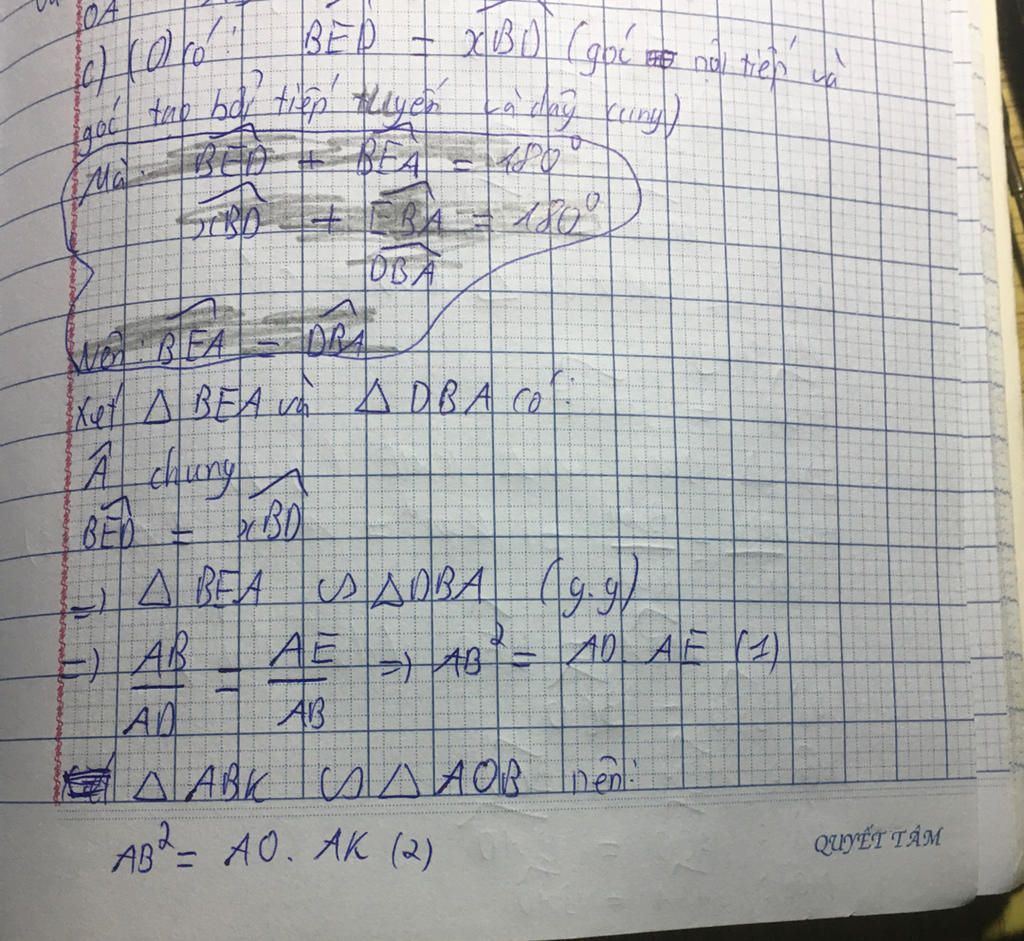 OA
c) (O) có: BED = xBD (góc nội tiếp và
góc tạo bởi tiếp tuyến và dây cung)
Mà: BED + BEA = 180°
xBD + EBA = 180°
DBA
Nên: BEA = DBA
Xét △ BEA và △ DBA có:
Â chung
BED = xBD
=) △ BEA ∽ △ DBA (g.g)
=) AB/AD = AE/AB =) AB² = AD. AE (1)
△ ABK ∽ △ AOB nên:
AB² = AO. AK (2)
QUYẾT TÂM